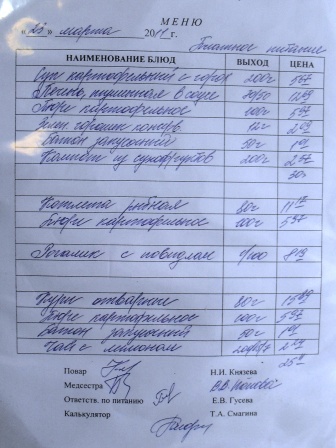 МЕНЮ
«23» марта 2011 г.
Платное питание
НАИМЕНОВАНИЕ БЛЮД ВЫХОД ЦЕНА
Суп картофельный с горох 200г
Печень, тушенная в соусе
Пюре картофельное 100г 5-37
Зелен. горошек консерв.
Батон закусочный
Компот из сухофруктов 200г
30-
Котлета рыбная 80г 11-17
Пюре картофельное 100г 5-37
Рогалик с повидлом 1/100
Куры отварные 80г
Пюре картофельное 100г 5-37
Батон закусочный 50г
Чай с лимоном
Повар Н.И. Князева
Медсестра
Ответств. по питанию Е.В. Гусева
Калькулятор Т.А. Смагина